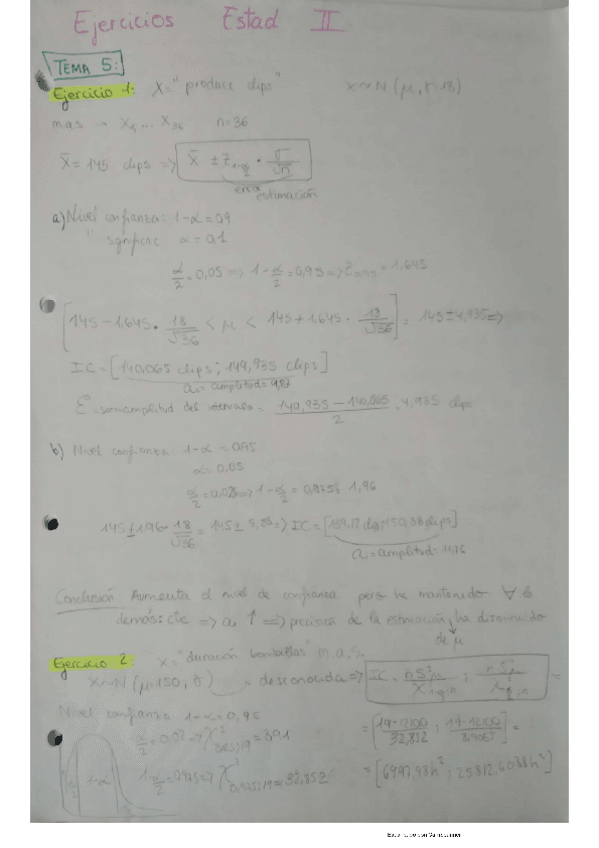 Ejercicios Estad II
TEMA 5:
Ejercicio 1: X="produce clips" X~N(μ, σ=18)
mas → X₁ ... X₃₆ n=36
X̄ = 145 clips => X̄ ± Z₁₋α/₂ · σ/√n
error estimación
a) Nivel confianza: 1-α=0,9
" significac α=0,1
α/2 = 0,05 => 1-α/2 = 0,95 => Z₀,₉₅ = 1,645
[145 - 1,645 · 18/√36 < μ < 145 + 1,645 · 18/√36] = 145 ± 4,935 =>
IC = [140,065 clips ; 149,935 clips]
a₁ = amplitud = 9,87
ε = semiamplitud del intervalo = (149,935 - 140,065)/2 = 4,935 clips
b) Nivel confianza: 1-α = 0,95
α = 0,05
α/2 = 0,025 => 1-α/2 = 0,975 1,96
145 ± 1,96 · 18/√36 = 145 ± 5,88 => IC = [139,12 clips; 150,88 clips]
a₁ = amplitud = 11,76
Conclusión: Aumenta el nivel de confianza pero ha mantenido ∀ lo
demás: cte => a₁ ↑ => precision de la estimación ha disminuido
de μ
Ejercicio 2: X="duración bombillas" m.a.s.
X~N(μ=150, σ) desconocida => IC =
Nivel confianza 1-α = 0,95
1-α
= [6997,98h² ; 25812,6038h²]